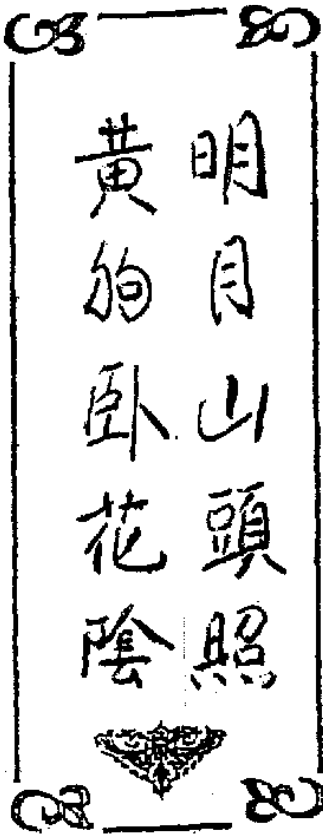 明月山頭照
黄狗卧花陰